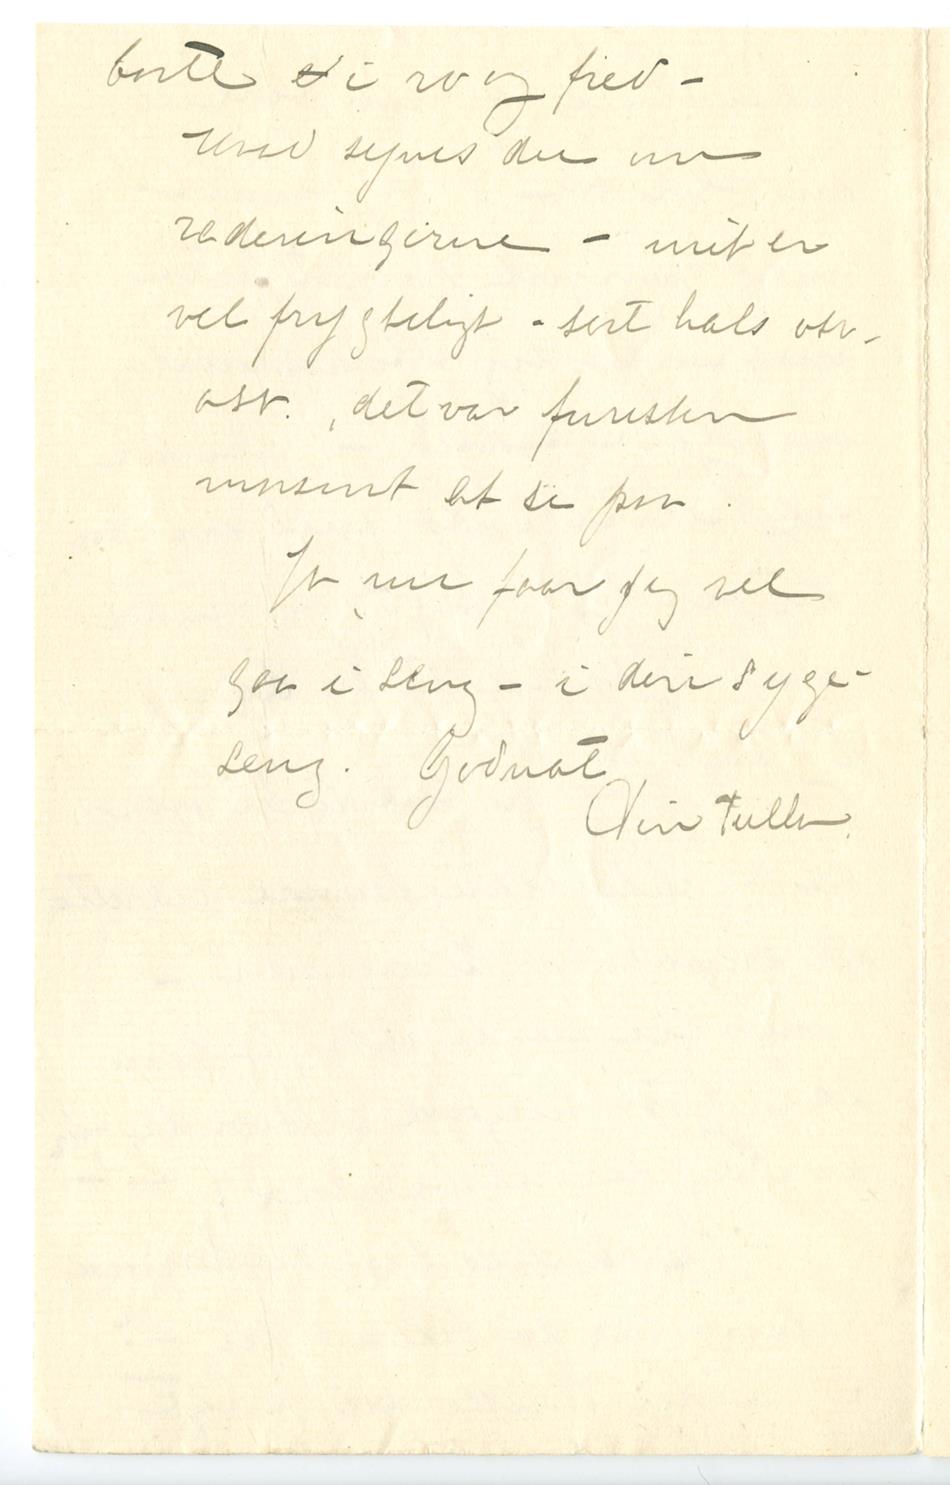 borte i ro og fred –
Hvad synes du om
raderingerne – mit er
vel frygteligt – sort hals osv.
osv., det var
morsomt at se paa.
Ja nu faar jeg vel
gaa i seng – i din syge-
seng. Godnat
Din Tulla.